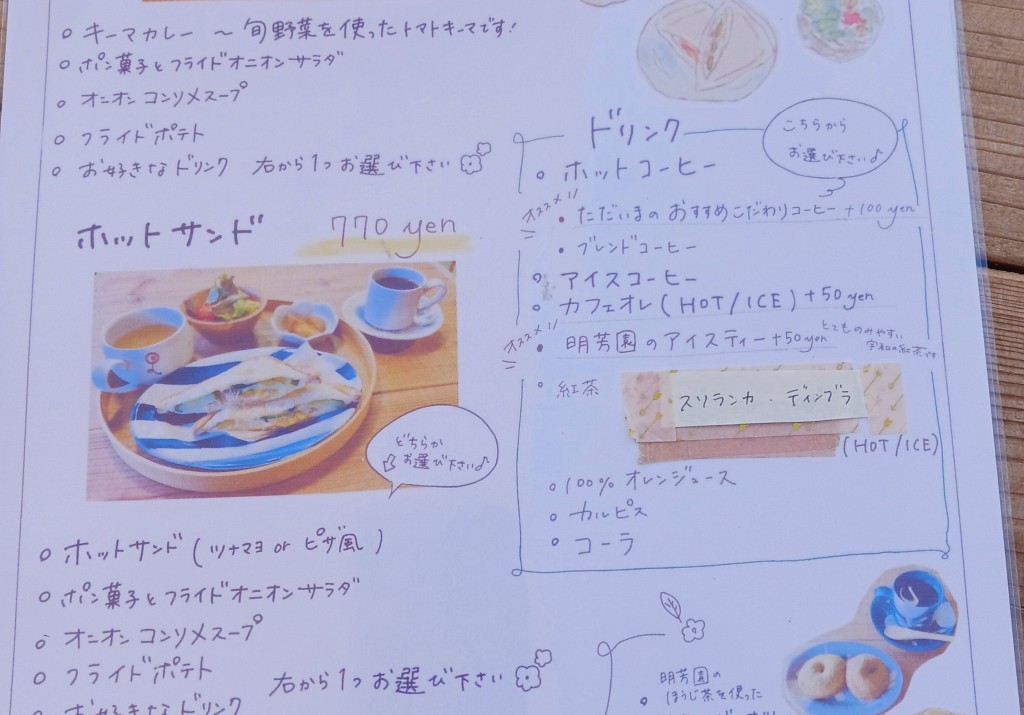 キーマカレー ～ 旬野菜を使ったトマトキーマです!
ポン菓子とフライドオニオンサラダ
オニオンコンソメスープ
フライドポテト
お好きなドリンク 右から1つお選び下さい
ホットサンド 770 yen
どちらか
お選び下さい♪
ホットサンド (ツナマヨ or ピザ風)
ポン菓子とフライドオニオンサラダ
オニオンコンソメスープ
フライドポテト
右から1つお選び下さい
お好きなドリンク
ドリンク
こちらから
お選び下さい♪
ホットコーヒー
オススメ!!
ただいまの おすすめこだわりコーヒー +100 yen
ブレンドコーヒー
アイスコーヒー
カフェオレ (HOT/ICE) +50 yen
オススメ!!
明芳園のアイスティー +50yen
とてものみやすい
紅茶です
紅茶
スリランカ・ディンブラ
(HOT/ICE)
100% オレンジュース
カルピス
コーラ
明芳園の
ほうじ茶を使った